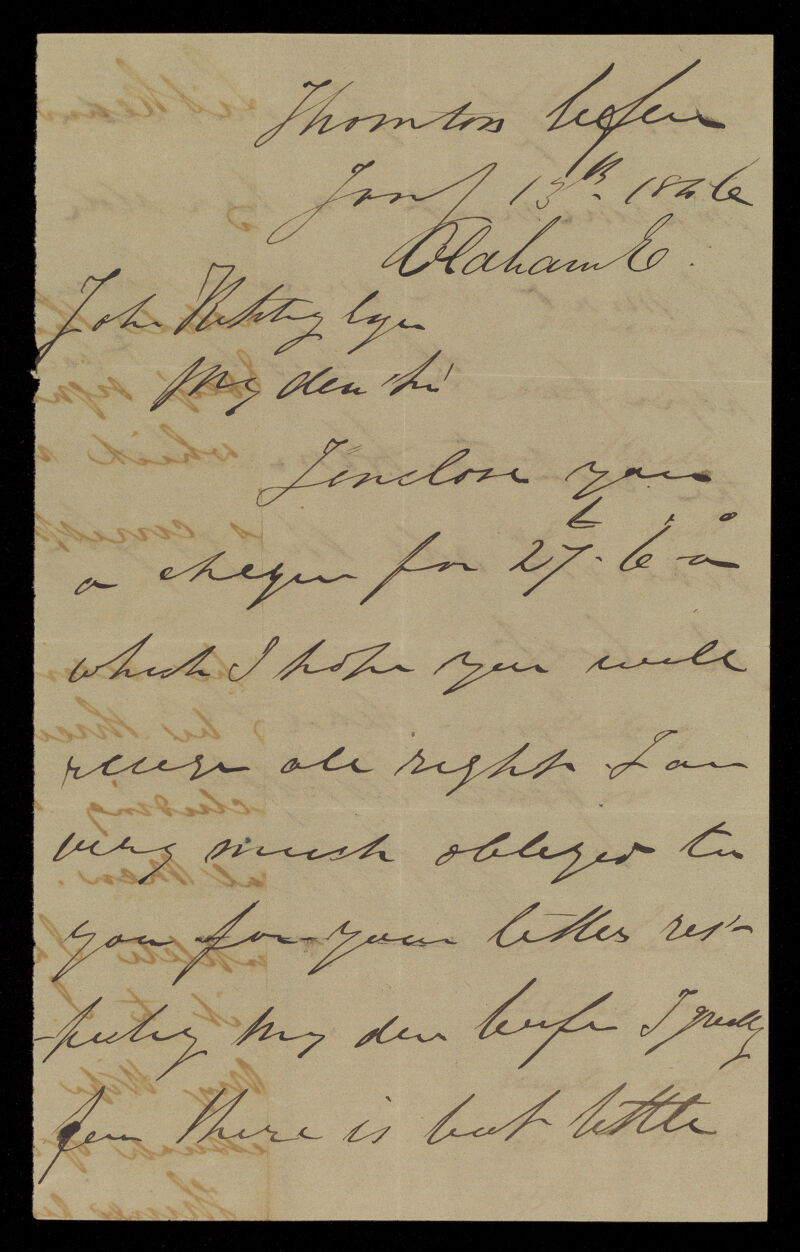 Thornton
Jany 13th 18
Oldham E.
John Esqre
My dear Sir
I enclose you
a cheque for 27£. 6s 0
which I hope you will
receive all right. I am
very much obliged to
you for your letter res-
-pecting my dear I greatly
fear there is but little